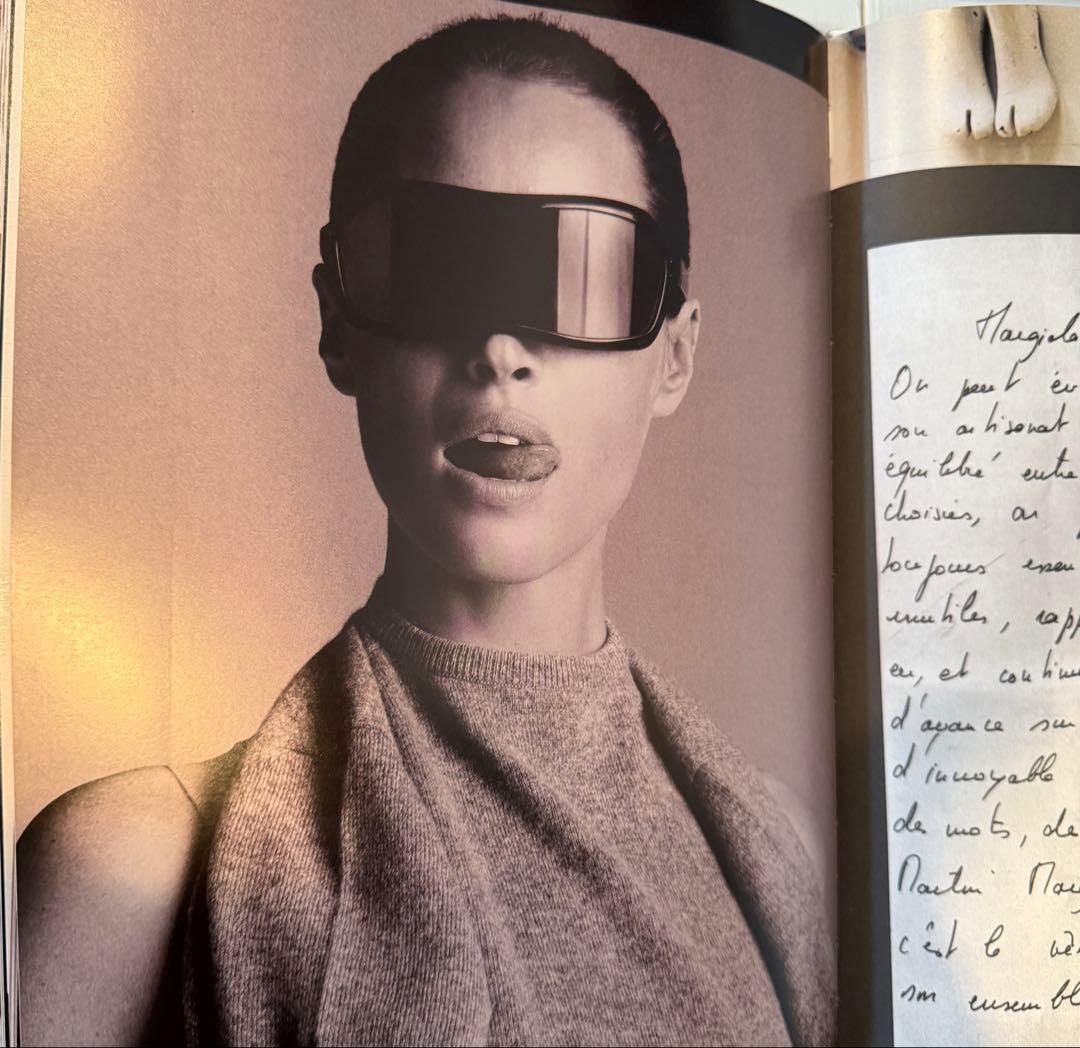 Margiela
On peut év
son artisanat
équilibré entre
choisies, ou
toujours essen
inutiles, rapp
en, et continu
d'avance sur
d'incroyable
des mots, de
Martin Marg
c'est le vê
son ensembl